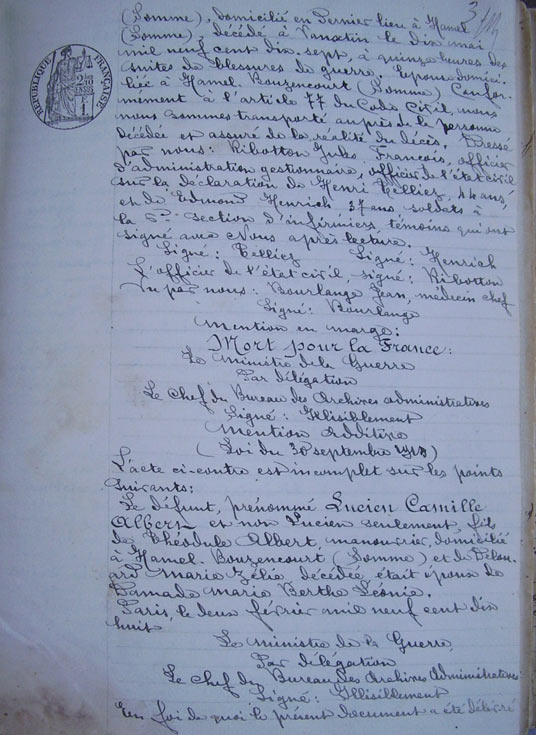 (Somme), domicilié en dernier lieu à Hamel
(Somme), décédé à Vanatin le dix mai
mil neuf cent dix-sept, à quinze heures des
suites de blessures de guerre. Epoux domici-
lié à Hamel. Bouzencourt (Somme) Confor-
mément à l'article 77 du Code Civil, nous
nous sommes transporté auprès de la personne
décédée et assuré de la réalité du décès. Dressé
par nous: Ribotton Jules François, officier
d'administration gestionnaire, officier de l'état civil
sur la déclaration de Henri Telliez, 44 ans,
et de Edmond Henrich 37 ans soldats à
la 6e section d'infirmiers, témoins qui ont
signé avec Nous après lecture.
Signé: Telliez Signé: Henrich
L'officier de l'état civil, signé: Ribotton
Vu par nous: Bourlange Jean, médecin chef
Signé: Bourlange
Mention en marge:
Mort pour la France:
Le Ministre de la Guerre
Par délégation
Le Chef du Bureau des Archives administratives
Signé: Illisiblement
Mention Additive
(Loi du 30 septembre)
L'acte ci-contre est incomplet sur les points
suivants:
Le défunt, prénommé Lucien Camille
Albert et non Lucien seulement, fils
de Théodule Albert, manouvrier, domicilié
à Hamel. Bouzencourt (Somme) et de
Marie Zélia, décédée, était époux de
Damade Marie Berthe Léonie.
Paris, le deux février mil neuf cent dix
huit
Le ministre de la Guerre,
Par délégation
Le Chef du Bureau des Archives Administratives:
Signé: Illisiblement
En foi de quoi le présent document a été délivré
RÉPUBLIQUE FRANÇAISE